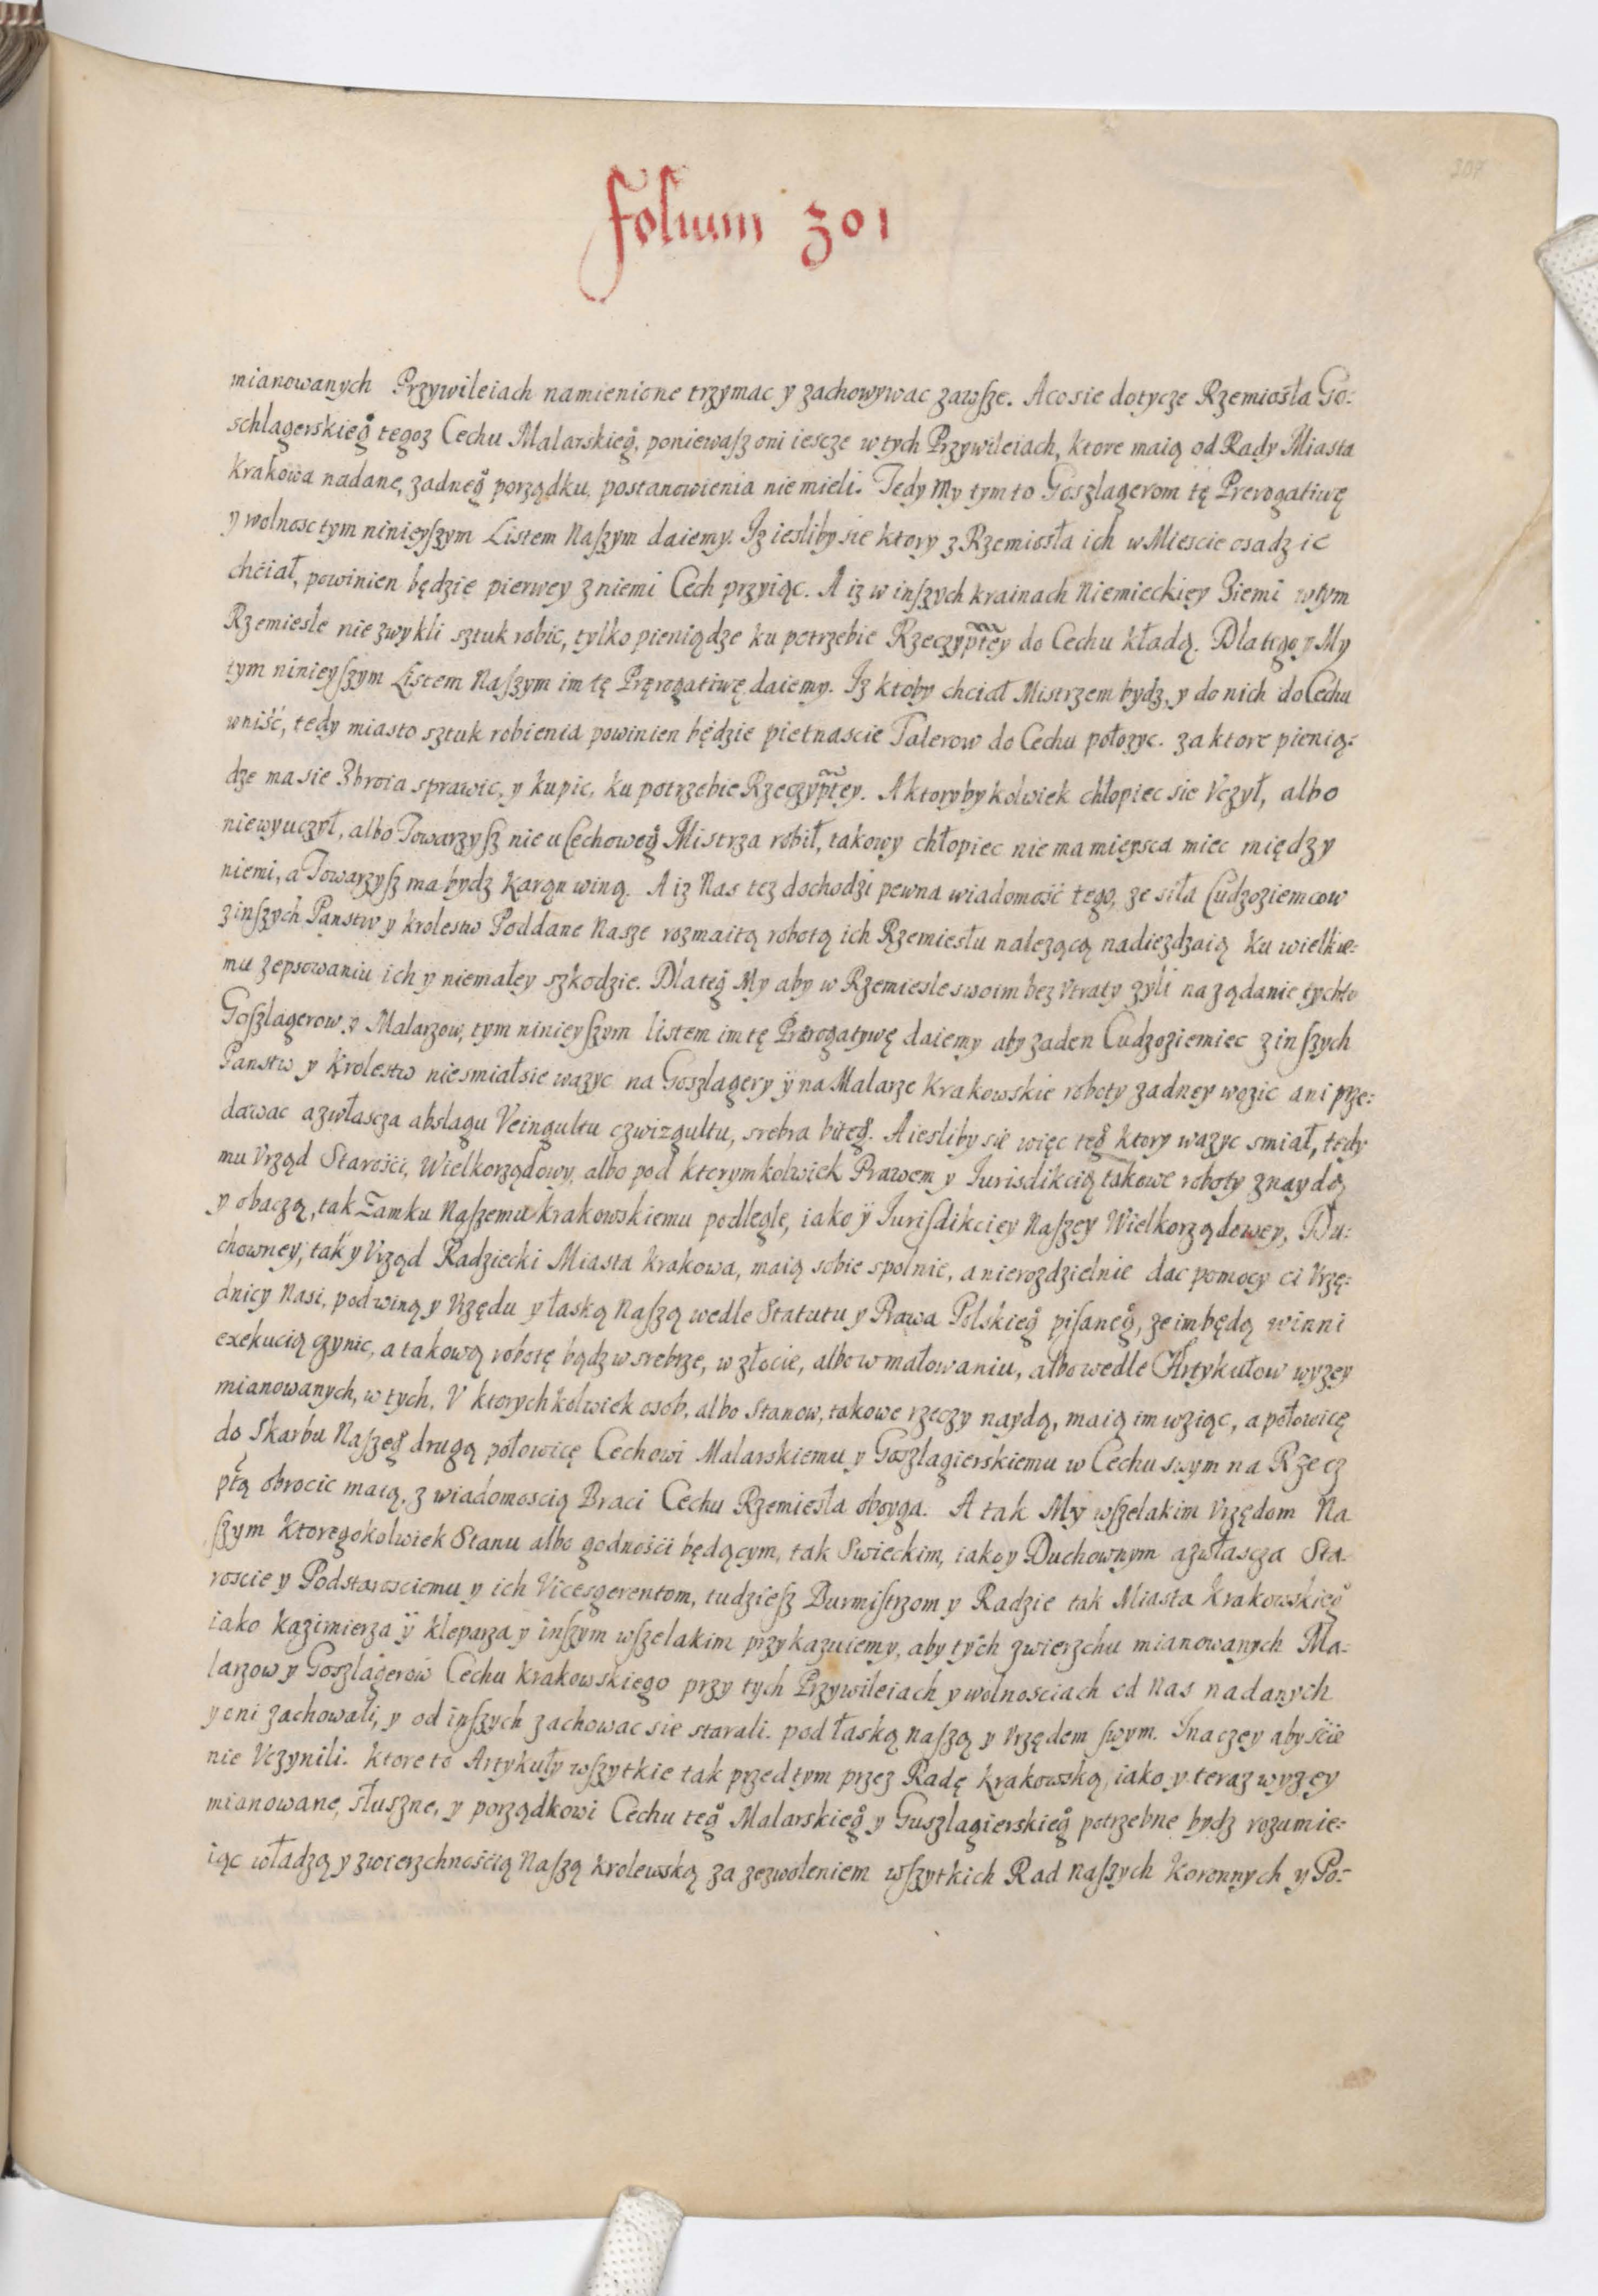 307
Folium 301
mianowanych Przywileiach namienione trzymac y zachowywac zawſze. A co sie dotycze Rzemiosła Go-
schlagerskieg̊ tegoz Cechu Malarskieg̊, poniewaſz oni iescze w tych Przywileiach, ktore maią od Rady Miasta
Krakowa nadane, zadneg̊ porządku, postanowienia nie mieli. Tedy My tym to Goszlagerom tę Prerogatiwę
y wolnosc tym ninieyſzym Listem Naſzym daiemy. Iz iesliby sie ktory z Rzemiosła ich w Miescie osadzic
chciał, powinien będzie pierwey z niemi Cech przyiąc. A iz w inſzych krainach Niemieckięy Ziemi w tym
Rzemiesle nie zwykli sztuk robic, tylko pieniądze ku potrzebie Rzeczyptey do Cechu kładą. Dlatego y My
tym ninieyſzym Listem Naſzym im tę Pręrogatiwę daiemy. Iz ktoby chciał Mistrzem bydz, y do nich do Cechu
wniść, tedy miasto sztuk robienia powinien będzie pietnascie Talerow do Cechu połozyc. za ktore pienią-
dze ma sie Zbroia sprawic, y kupic, ku potrzebie Rzeczyptey. A ktorybykolwiek chłopiec sie Vczył, albo
niewyuczył, albo Towarzyſz nie u Cechoweg̊ Mistrza robił, takowy chłopiec nie ma mięysca miec między
niemi, a Towarzyſz ma bydz karąn winą. A iz Nas tez dochodzi pewna wiadomość tego, ze siła Cudzoziemcow
z inſzych Panstw y krolestw Poddane Nasze rozmaitą robotą ich Rzemiesłu nalezącą nadiezdzaią ku wielkie-
mu zepsowaniu ich y niemałey szkodzie. Dlateg̊ My aby w Rzemiesle swoim bez Vtraty zyli na ządanie tychto
Goſzlagerow y Malarzow, tym ninieyſzym listem im tę Prerogatywę daiemy aby zaden Cudzoziemiec z inſzych
Panstw y Krolestw niesmiał sie wazyc na Goszlagery ÿ na Malarze Krakowskie roboty zadney wozic ani prze-
dawac a zwłascza abslagu Veingultu czwizgultu, srebra biteg̊. A iesliby sie więc teg̊ ktory wazyc smiał, tedy
mu Vrząd Starości, Wielkorządowy, albo pod kterymkolwiek Prawem y Iurisdikcią takowe roboty znaydą
y obaczą, tak Zamku Naſzemu krakowskiemu podległe, iako ÿ Juriſdikciey Naſzey Wielkorządowey, Du-
chowney, tak y Vrząd Radziecki Miasta krakowa, maią sobie spolnie, a nierozdzielnie dac pomocy ci Vrzę-
dnicy Nasi, pod winą y Vrzędu y łaską Naſzą wedle Statutu y Prawa Polskieg̊ piſaneg̊, ze im będą winni
exekucią czynic, a takową robotę bądz w srebrze, w złocie, albo w malowaniu, albo wedle Artykułow wyzey
mianowanych, w tych, V ktorychkolwiek osob, albo Stanow, takowe rzeczy naydą, maią im wziąc, a połowicę
do Skarbu Naſzeg̊ drugą połowicę Cechowi Malarskiemu y Goszlagierskiemu w Cechu swym na Rzecz
ptą obrocic maią, z wiadomoscią Braci Cechu Rzemiesła oboyga. A tak My wſzelakim Vrzędom Na
ſzym ktoregokolwiek Stanu albo godności będącym, tak Swieckim, iako y Duchownym a zwłascza Sta-
roscie y Podstarosciemu y ich Vicesgerentom, tudzieſz Burmiſtrzom y Radzie tak Miasta Krakowskieg̊
iako Kazimierza ÿ Kleparza y inſzym wſzelakim przykazuiemy, aby tych zwierzchu mianowanych Ma-
larzow y Goszlagerow Cechu krakowskiego przy tych Przywileiach y wolnosciach od Nas nadanych
y oni zachowali, y od inſzych zachowac sie starali. pod łaską naſzą y Vrzędem ſwym. Inaczey abyście
nie Vczynili. Ktore to Artykuły wſzytkie tak przedtym przez Radę krakowską, iako y teraz wyzey
mianowane, słuszne, y porządkowi Cechu teg̊ Malarskieg̊ y Guszlagierskieg̊ potrzebne bydz rozumie-
iąc władzą y zwierzchnością Naſzą krolewską za zezwoleniem wſzytkich Rad naſzych koronnych y Po-